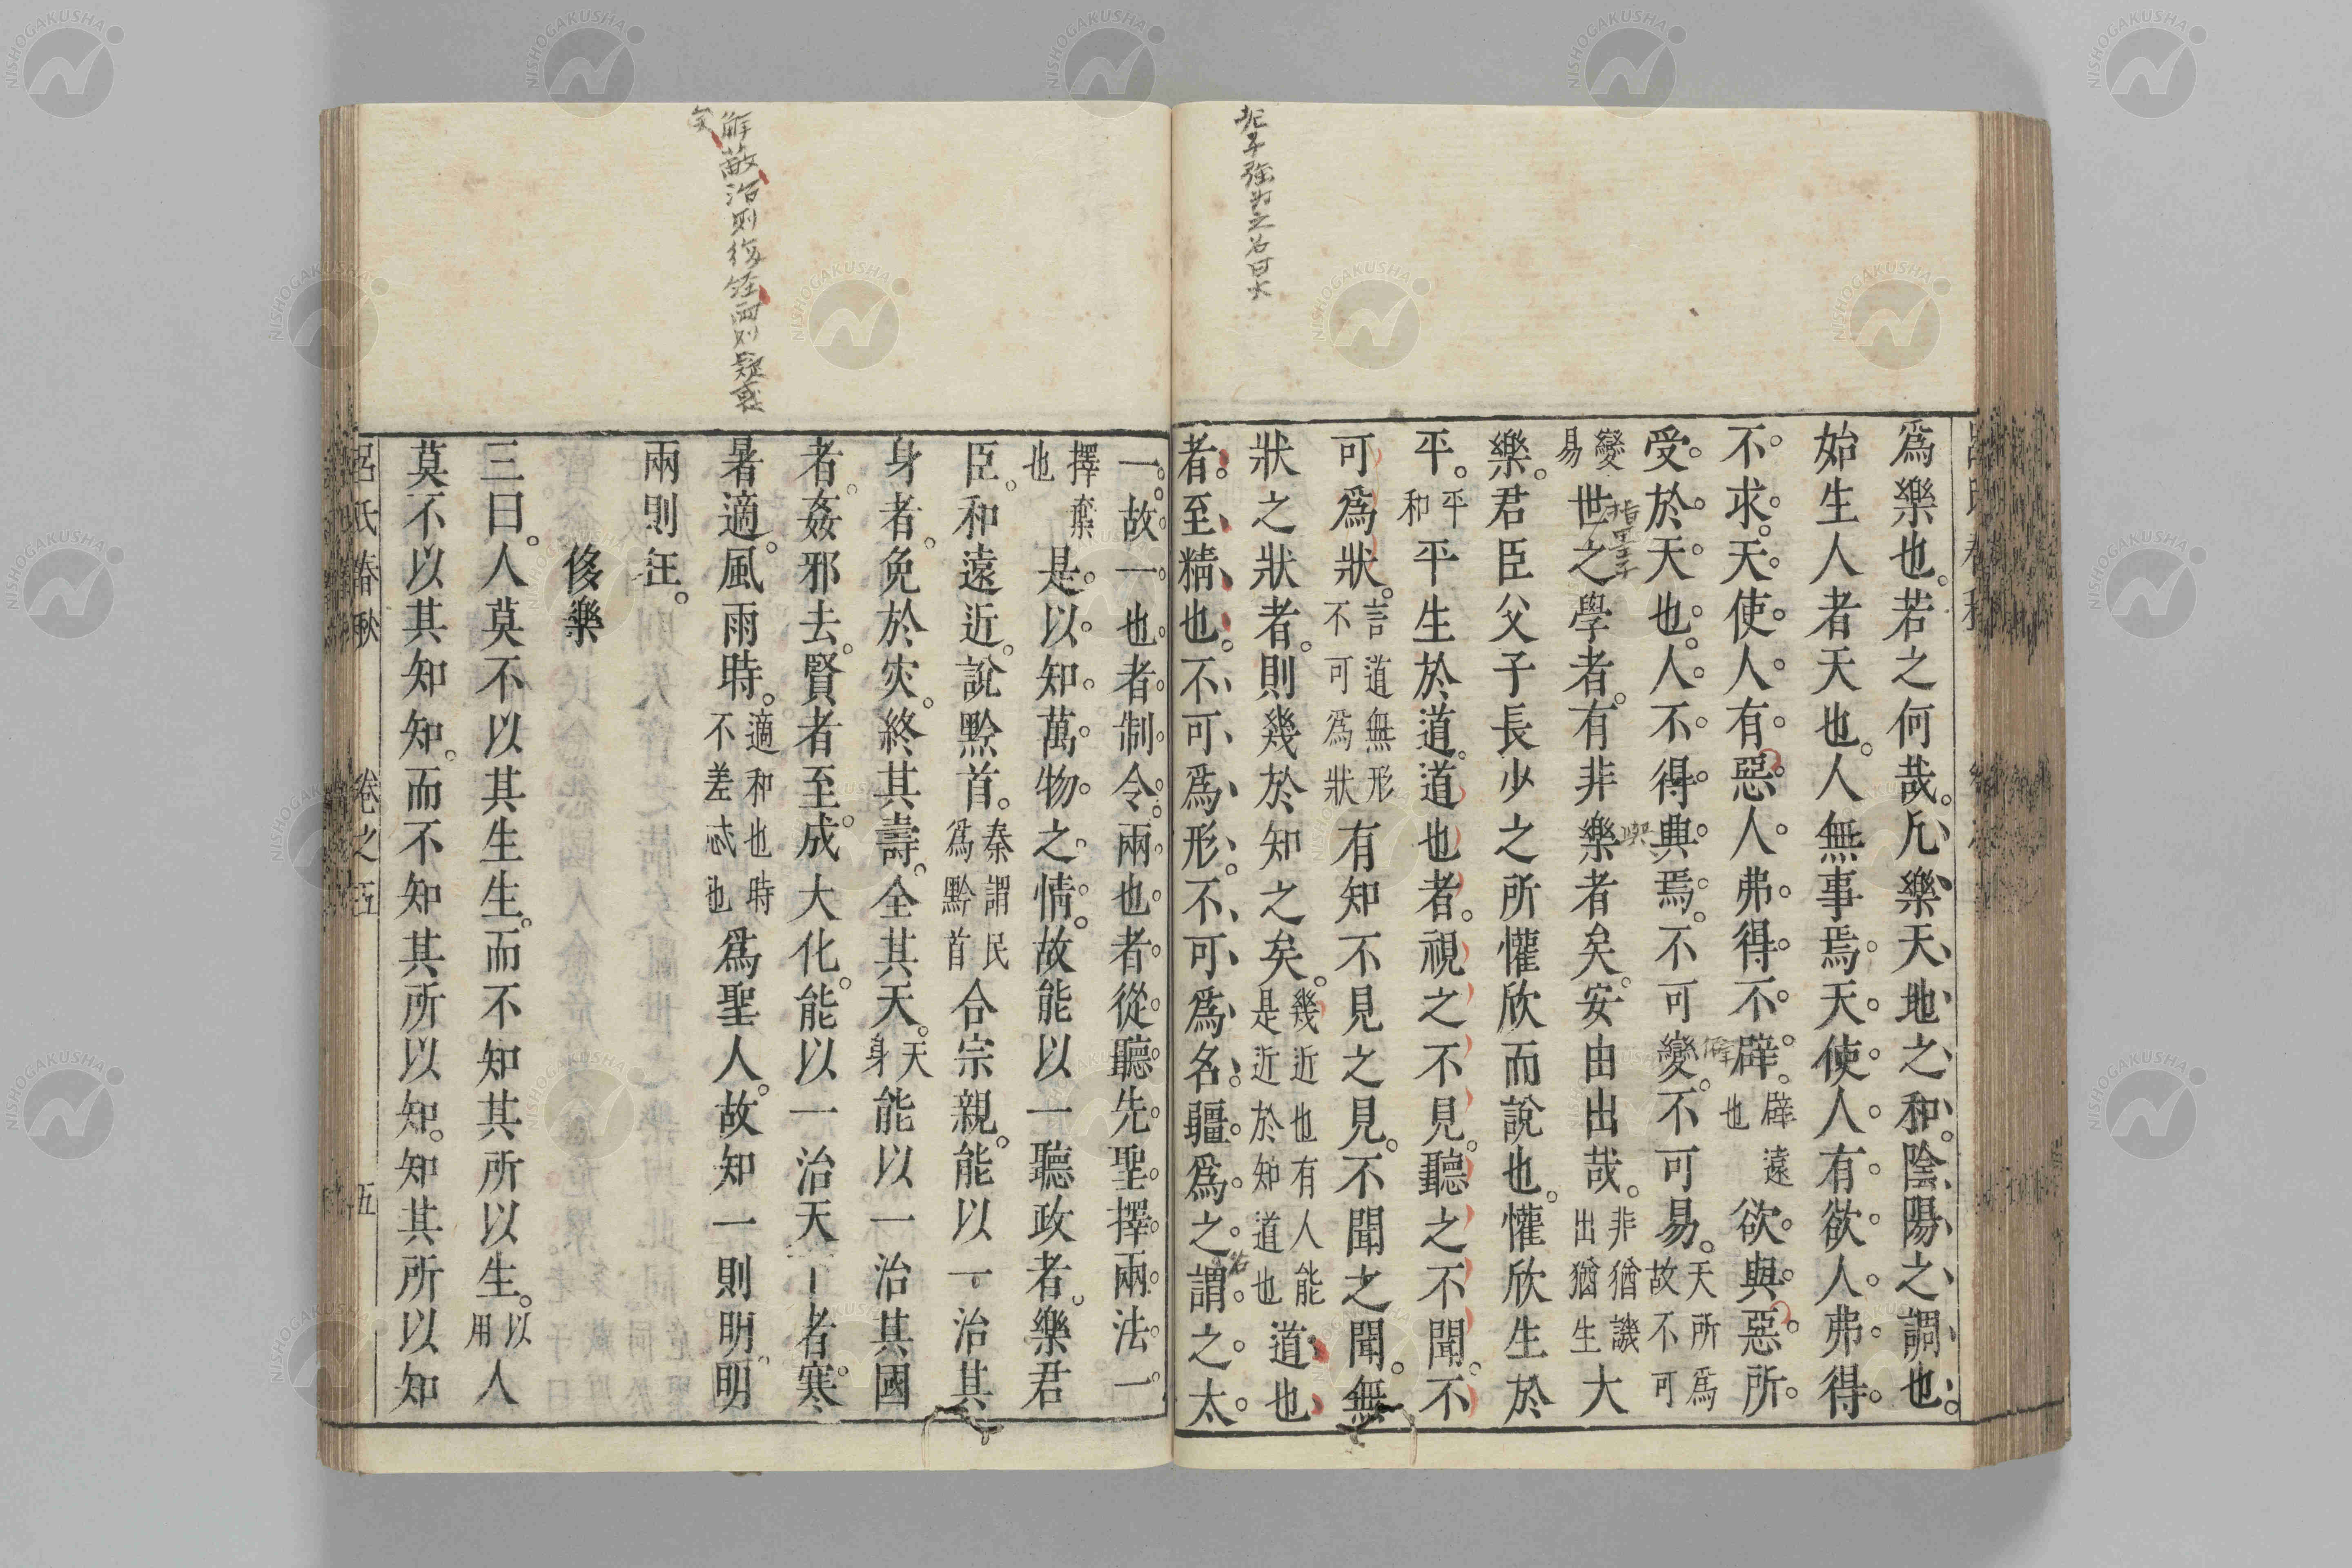 爲樂也。若之何哉。凡樂天地之和。陰陽之調也。
始生人者天也。人無事焉。天使人有欲。人弗得
不求。天使人有惡。人弗得不辟。辟遠也欲與惡。所
受於天也。人不得典焉。不可變。不可易。天所爲故不可
變易世之學者。有非樂者矣。安由出哉。非猶譏出猶生大
樂。君臣父子長少之所懽欣而說也。懽欣生於
平。平和平生於道。道也者。視之不見。聽之不聞。不
可爲狀。言道無形不可爲狀有知不見之見。不聞之聞。無
狀之狀者。則幾於知之矣。幾近也有人能是近於知道也道也
者。至精也。不可爲形。不可爲名。疆爲之。謂之太
一。故一也者制令。兩也者從聽。先聖擇兩法一。
擇棄也是以知萬物之情。故能以一聽政者。樂君
臣。和遠近。說黔首。秦謂民爲黔首合宗親。能以一治其
身者。免於灾。終其壽。全其天。天身能以一治其國
者。姦邪去。賢者至。成大化。能以一治天下者。寒
暑適。風雨時。適和也時不差忒也爲聖人。故知一則明。明
兩則狂。
侈樂
三曰。人莫不以其生生。而不知其所以生。以用人
莫不以其知知。而不知其所以知。知其所以知
呂氏春秋 卷之五 五
老子強爲之名曰大
解蔽治則復經兩則疑惑
矣
指墨子
與
僻
名
NISHOGAKUSHA